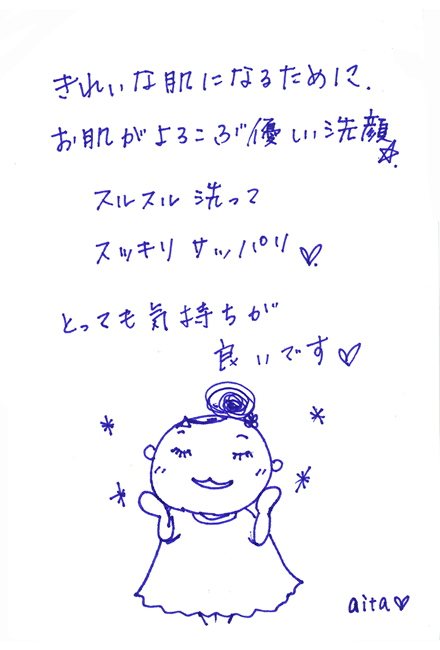 きれいな肌になるために.
お肌がよろこぶ優しい洗顔☆.
スルスル洗って
スッキリサッパリ♡.
とっても気持ちが
良いです♡
aita♡